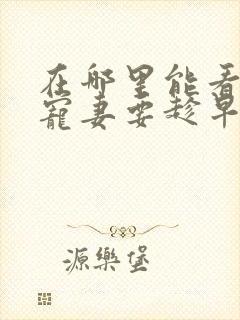 在哪里能看
寵妻要趁早
源樂堡